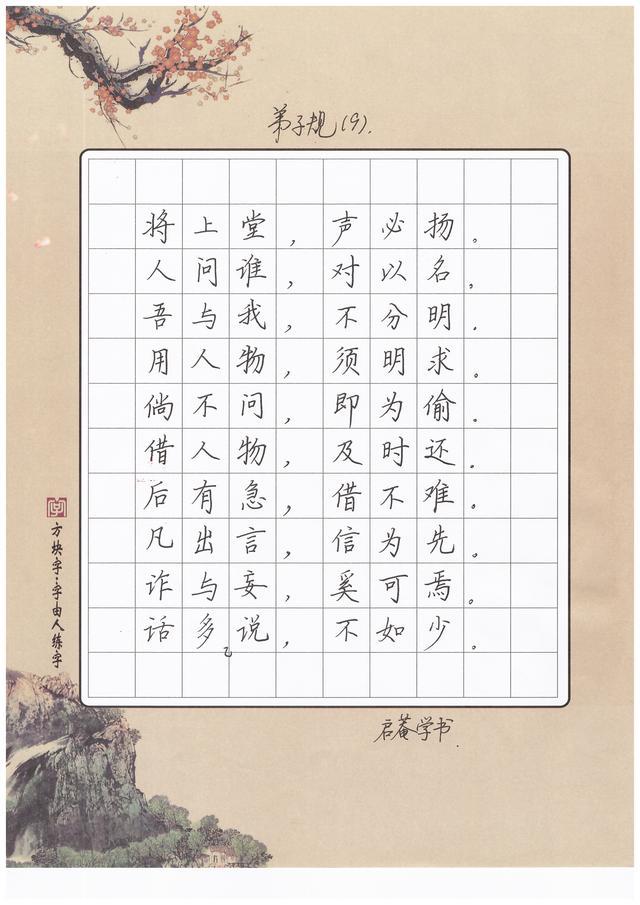 弟子规(9).
将上堂，声必扬。
人问谁，对以名，
吾与我，不分明.
用人物，须明求。
倘不问，即为偷。
借人物，及时还。
后有急，借不难。
凡出言，信为先。
诈与妄，奚可焉。
话多说，不如少。
方块字·字由人练字
启菴学书.